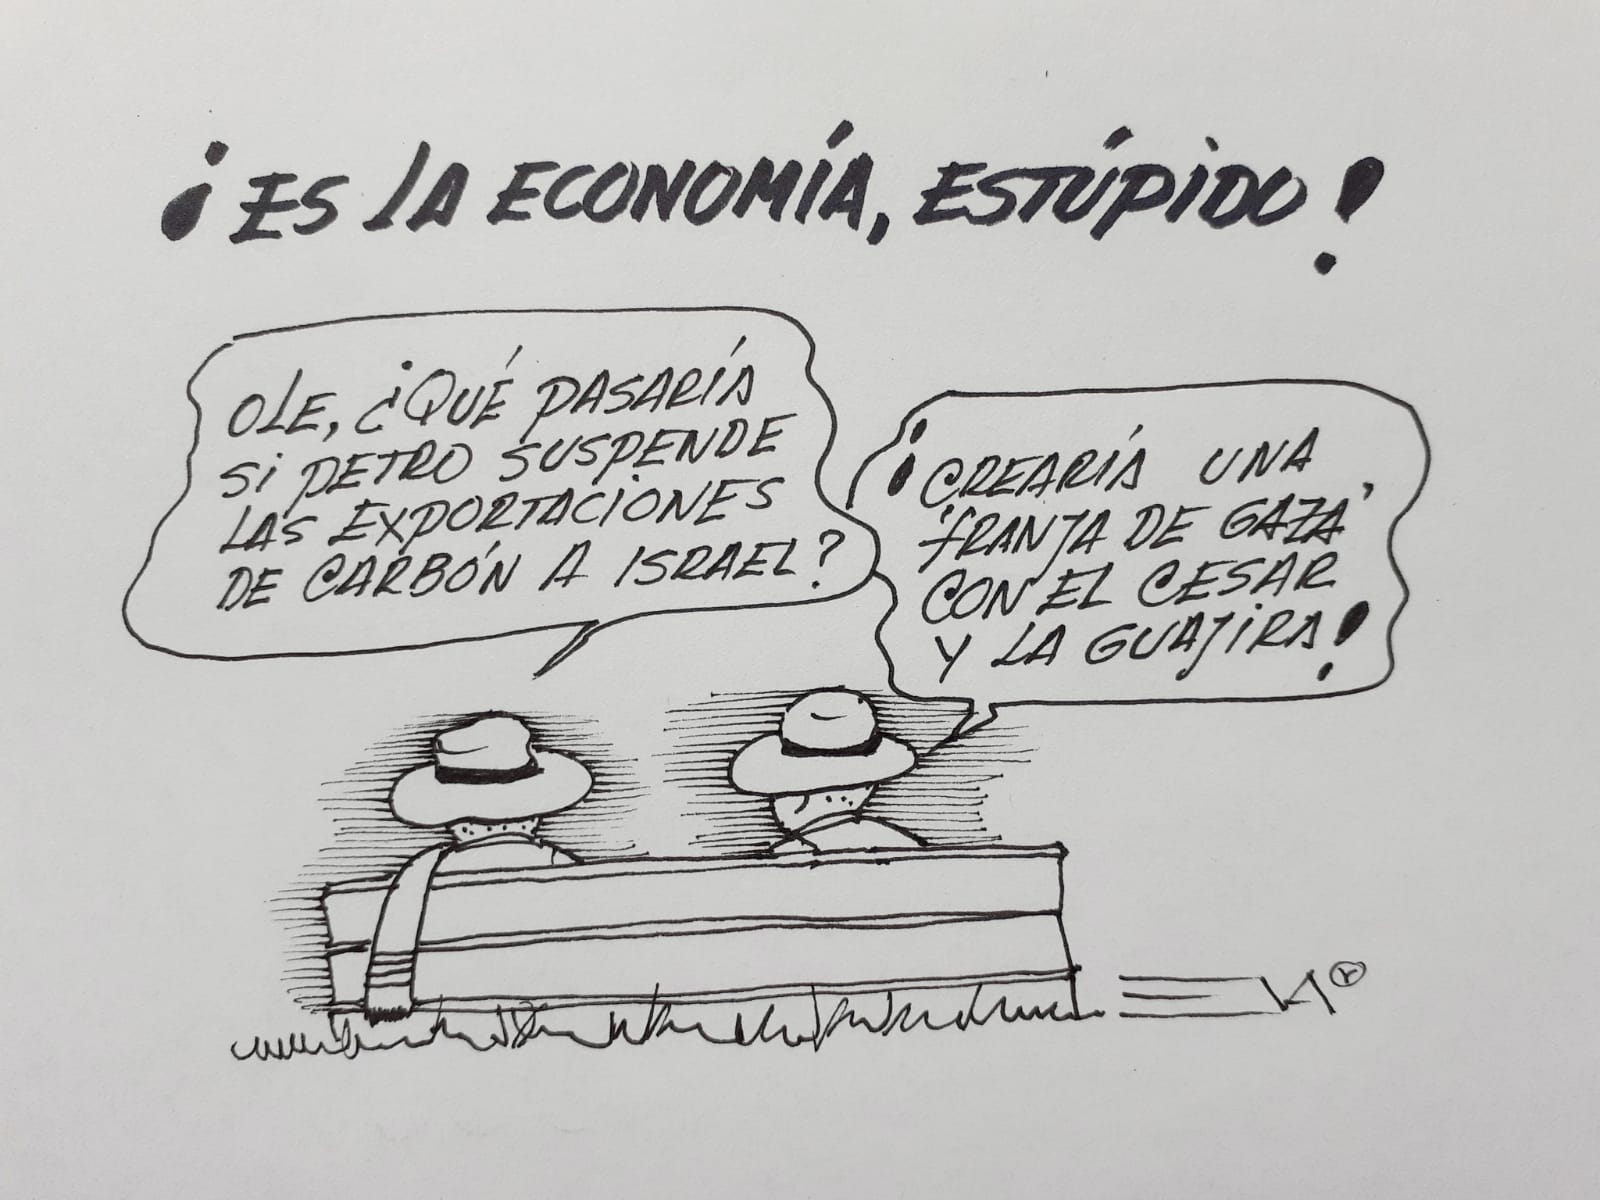 ¡ES LA ECONOMÍA, ESTÚPIDO!
OLE, ¿QUÉ PASARÍA
SI PETRO SUSPENDE
LAS EXPORTACIONES
DE CARBÓN A ISRAEL?
¡CREARÍA UNA
'FRANJA DE GAZA'
CON EL CESAR
Y LA GUAJIRA!